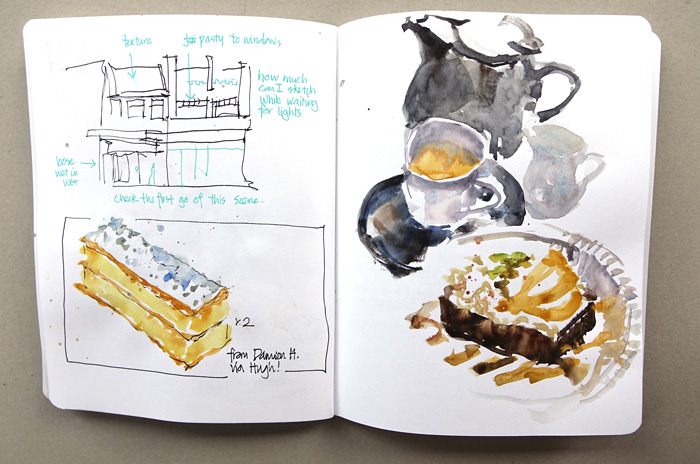 texture
pasty to windows
how much
can I sketch
while waiting
for lights
loose
wet in
wet
check the first go of this scene.
x2
from Damien H.
via Hugh!